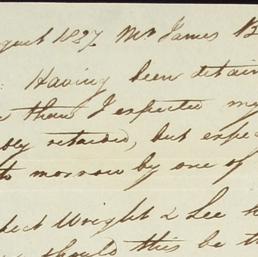 August 1837 Mr James B
Having been detain
than I expected my
retained, but expe
to morrow by one of
Wright & Lee h
should this be th